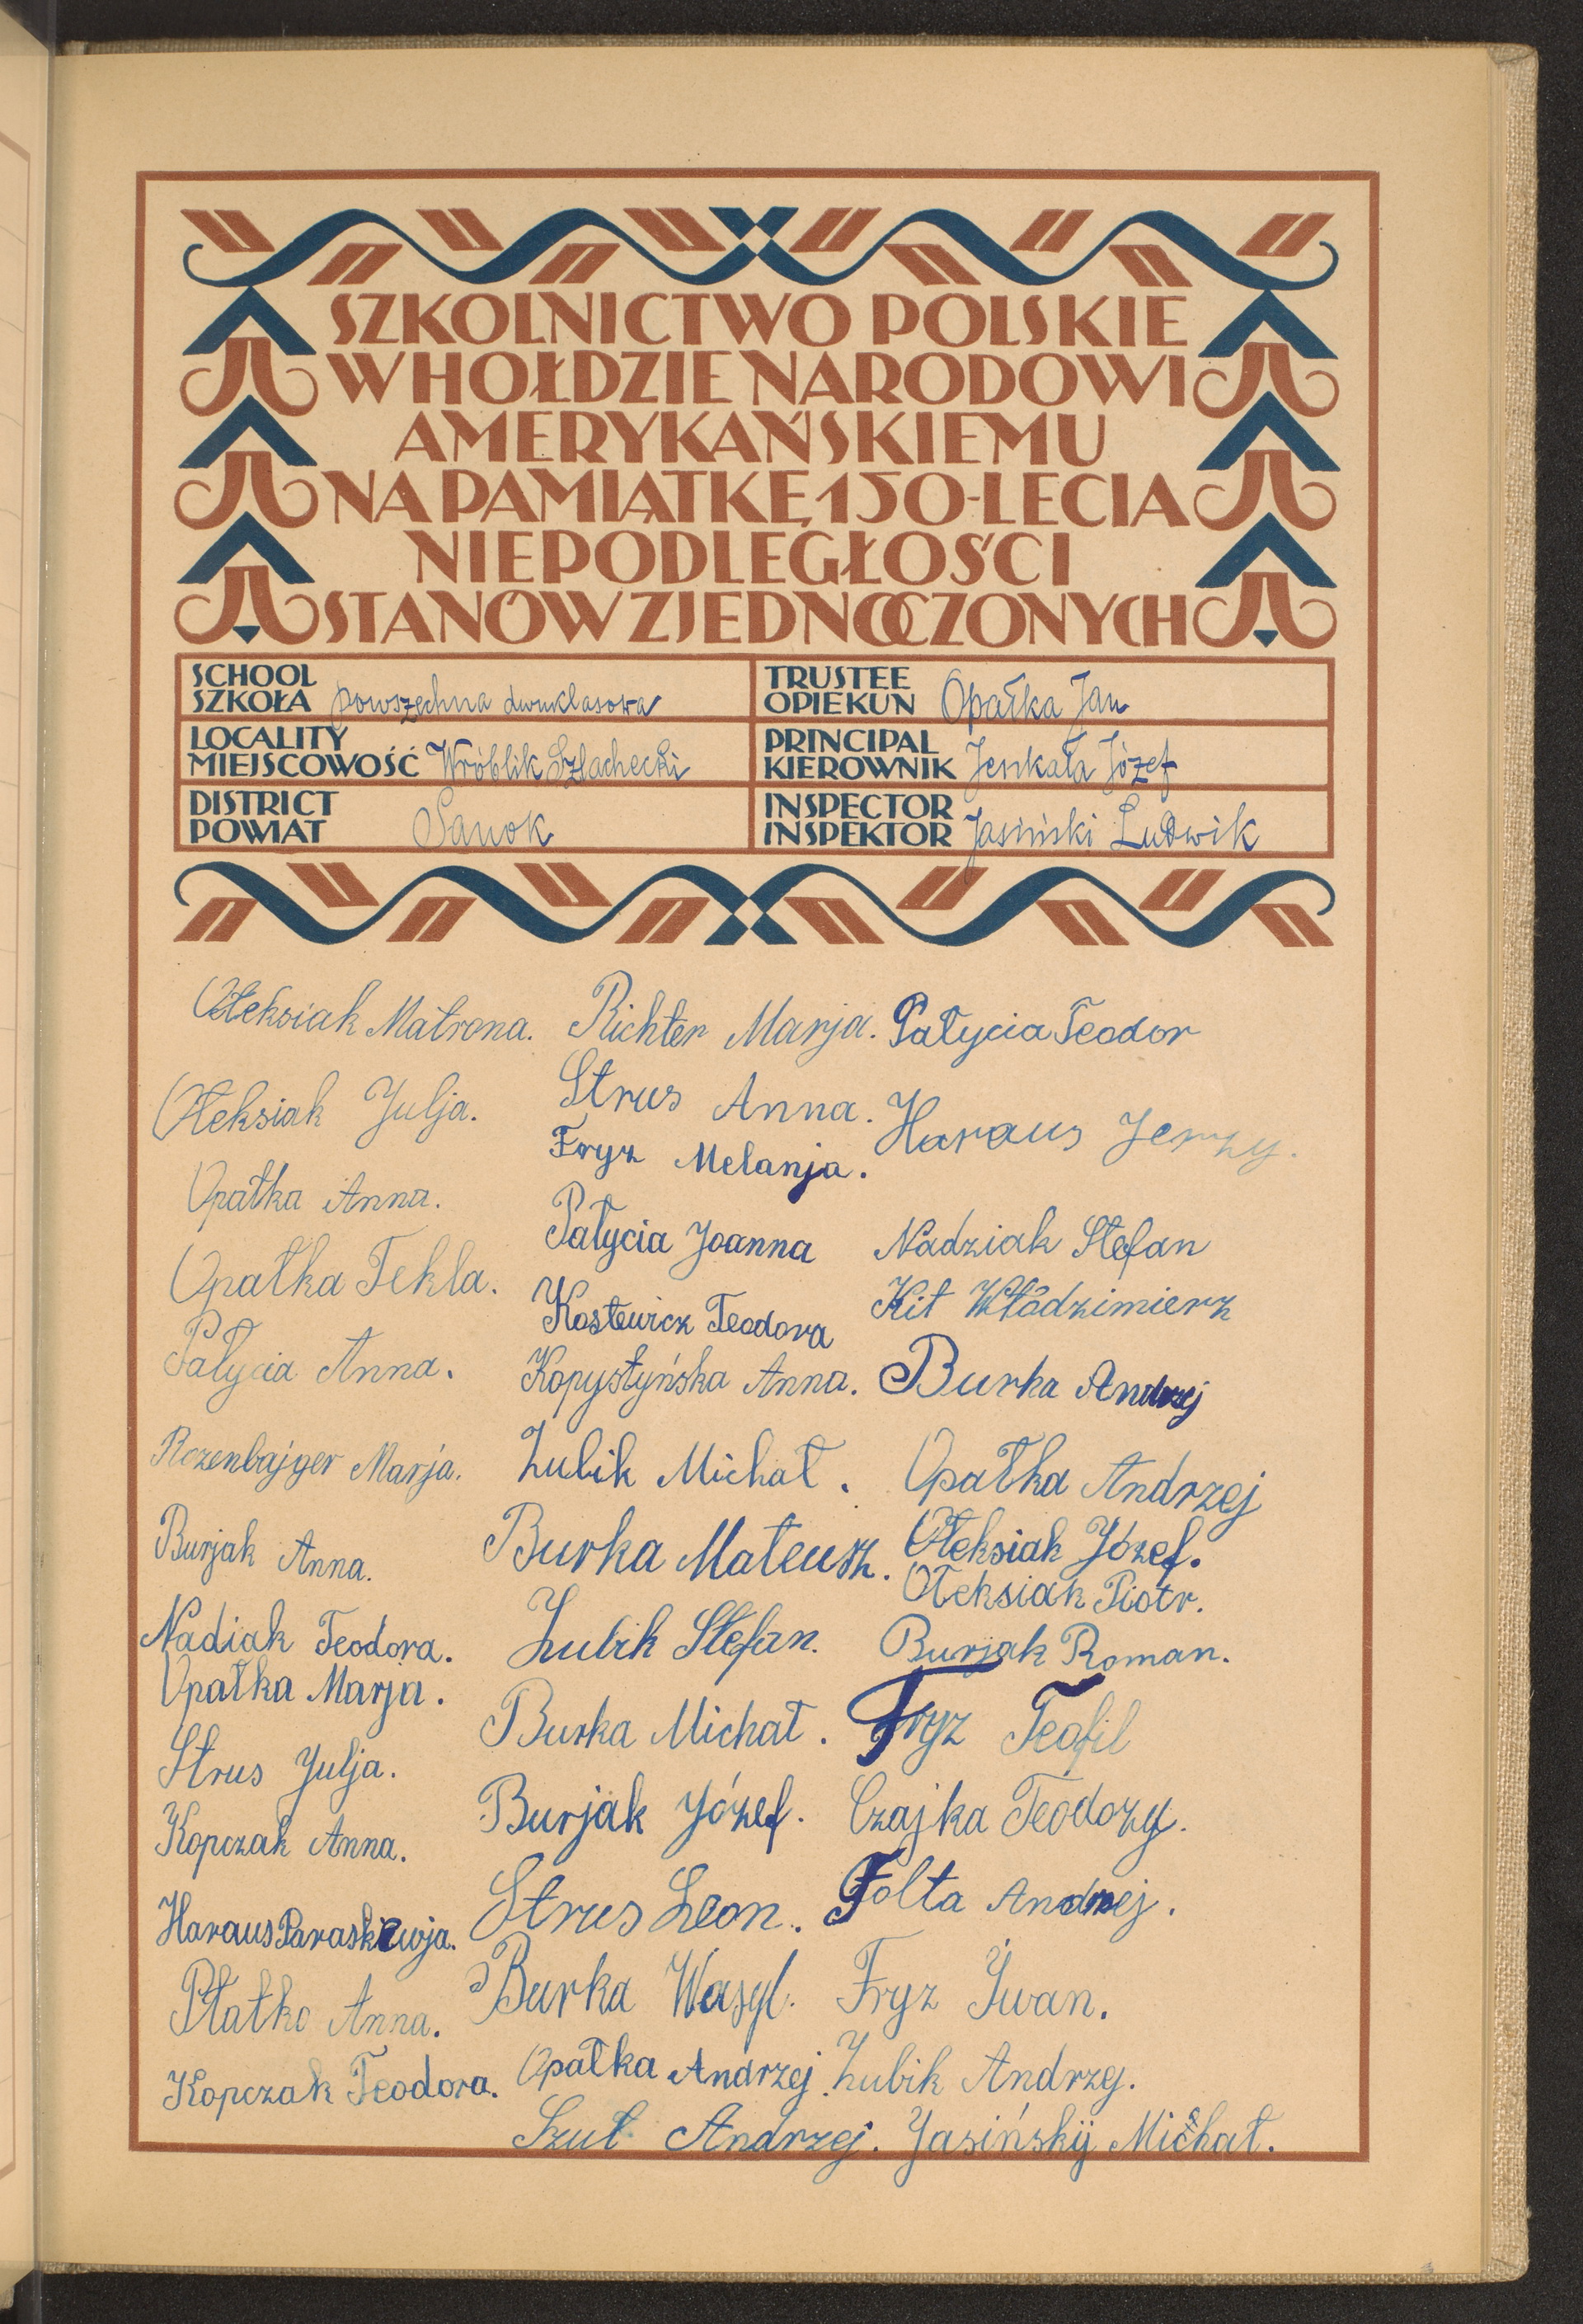 SZKOLNICTWO POLSKIE
W HOŁDZIE NARODOWI
AMERYKAŃSKIEMU
NA PAMIĄTKĘ 150-LECIA
NIEPODLEGŁOŚCI
STANÓW ZJEDNOCZONYCH
SCHOOL
SZKOŁA powszechna dwuklasowa
TRUSTEE
OPIEKUN Opałka Jan
LOCALITY
MIEJSCOWOŚĆ Wróblik Szlachecki
PRINCIPAL
KIEROWNIK Jenkała Józef
DISTRICT
POWIAT Sanok
INSPECTOR
INSPEKTOR Jasiński Ludwik
Ołeksiak Matrona.
Ołeksiak Julja.
Opałka Anna.
Opałka Tekla.
Pałycia Anna.
Rozenbajger Marja.
Burjak Anna.
Nadiak Teodora.
Opałka Marja.
Strus Julja.
Kopczak Anna.
Haraus Paraskewja.
Płatko Anna.
Kopczak Teodora.
Richter Marja.
Strus Anna.
Fryz Melanja.
Pałycia Joanna
Kostewicz Teodora
Kopystyńska Anna.
Zubik Michał.
Burka Mateusz.
Zubik Stefan.
Burka Michał.
Burjak Józef.
Strus Leon.
Burka Wasyl.
Opałka Andrzej.
Szut Andrzej.
Pałycia Teodor
Haraus Jerzy.
Nadziak Stefan
Kit Włodzimierz
Burka Andrzej
Opałka Andrzej
Ołeksiak Józef.
Ołeksiak Piotr.
Burjak Roman.
Fryz Teofil
Czajka Teodozy.
Folta Andrzej.
Fryz Iwan.
Zubik Andrzy.
Jasińskij Michał.